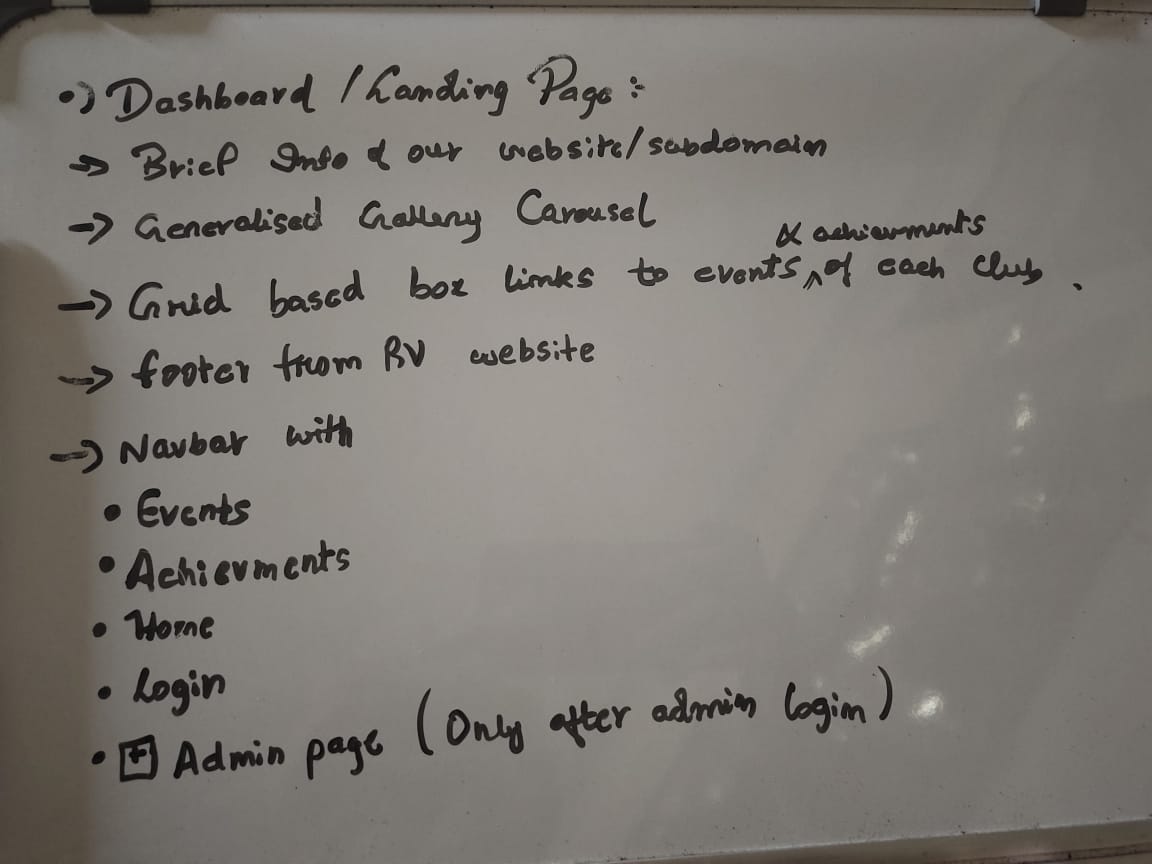 •) Dashboard / Landing Page :-
→ Brief Info of our website/subdomain
→ Generalised Gallery Carousel
→ Grid based box links to events ^ & achievments of each club .
→ footer from RV website
→ Navbar with
• Events
• Achievments
• Home
• Login
• [+] Admin page (Only after admin login)